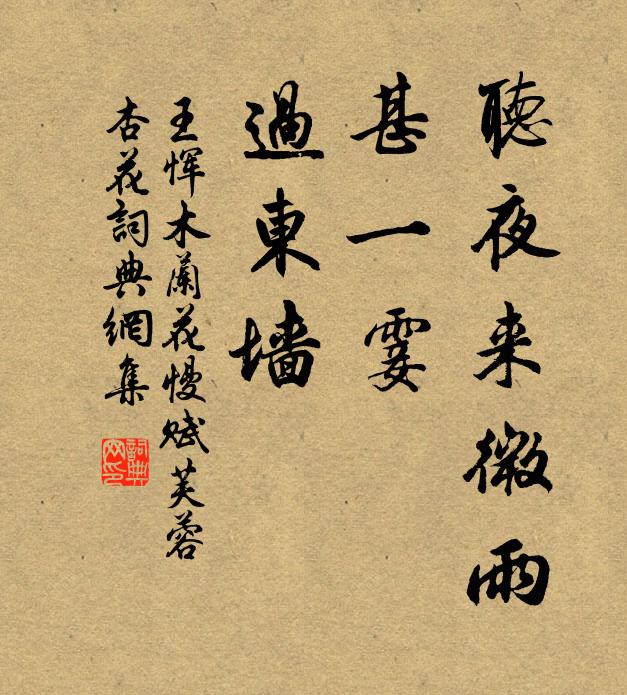 聽夜来微雨
甚一霎
過東墻
王惲木蘭花慢賦芙蓉
杏花詞典網集
詞典
网印